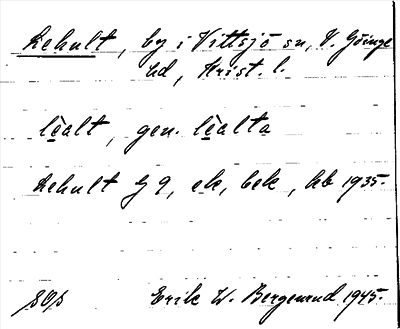 Lehult, by i Vittsjö sn, V. Göinge
hd, Krist. l.
lèalt, gen. lèalta
Lehult G 9, ek, bek, hb 1935.
Erik W. Bergenrud 1945.